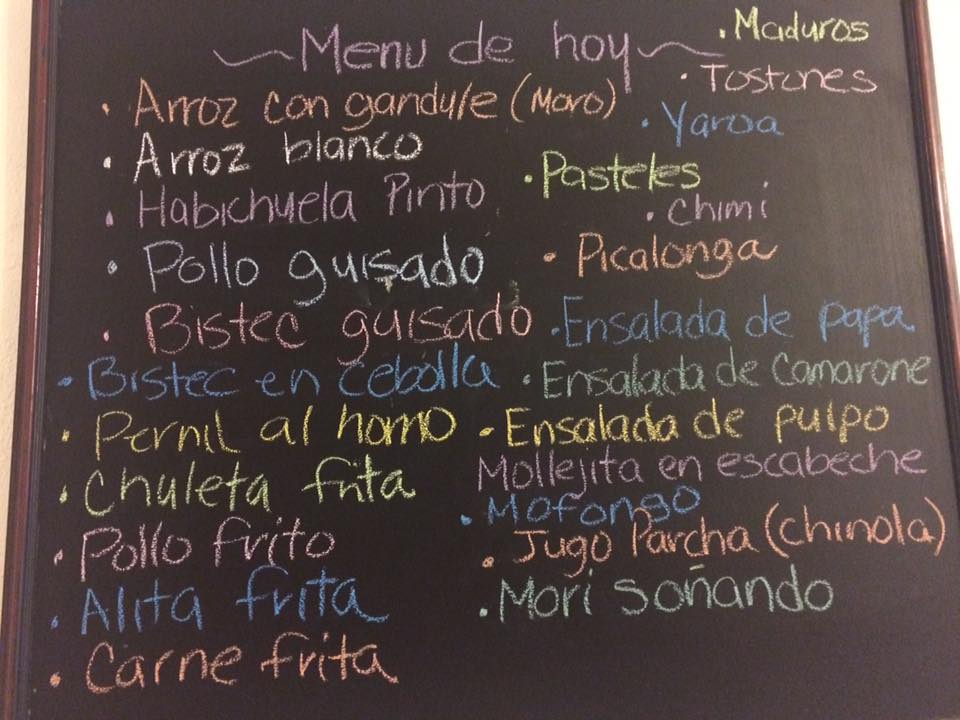 ~Menu de hoy~
· Arroz con gandule (Moro)
· Arroz blanco
· Habichuela Pinto
· Pollo guisado
· Bistec guisado
· Bistec en cebolla
· Pernil al horno
· Chuleta frita
· Pollo frito
· Alita frita
· Carne frita
· Maduros
· Tostones
· Yaroa
· Pasteles
· Chimi
· Picalonga
· Ensalada de papa
· Ensalada de Camarone
· Ensalada de pulpo
Mollejita en escabeche
· Mofongo
· Jugo Parcha (Chinola)
· Mori soñando